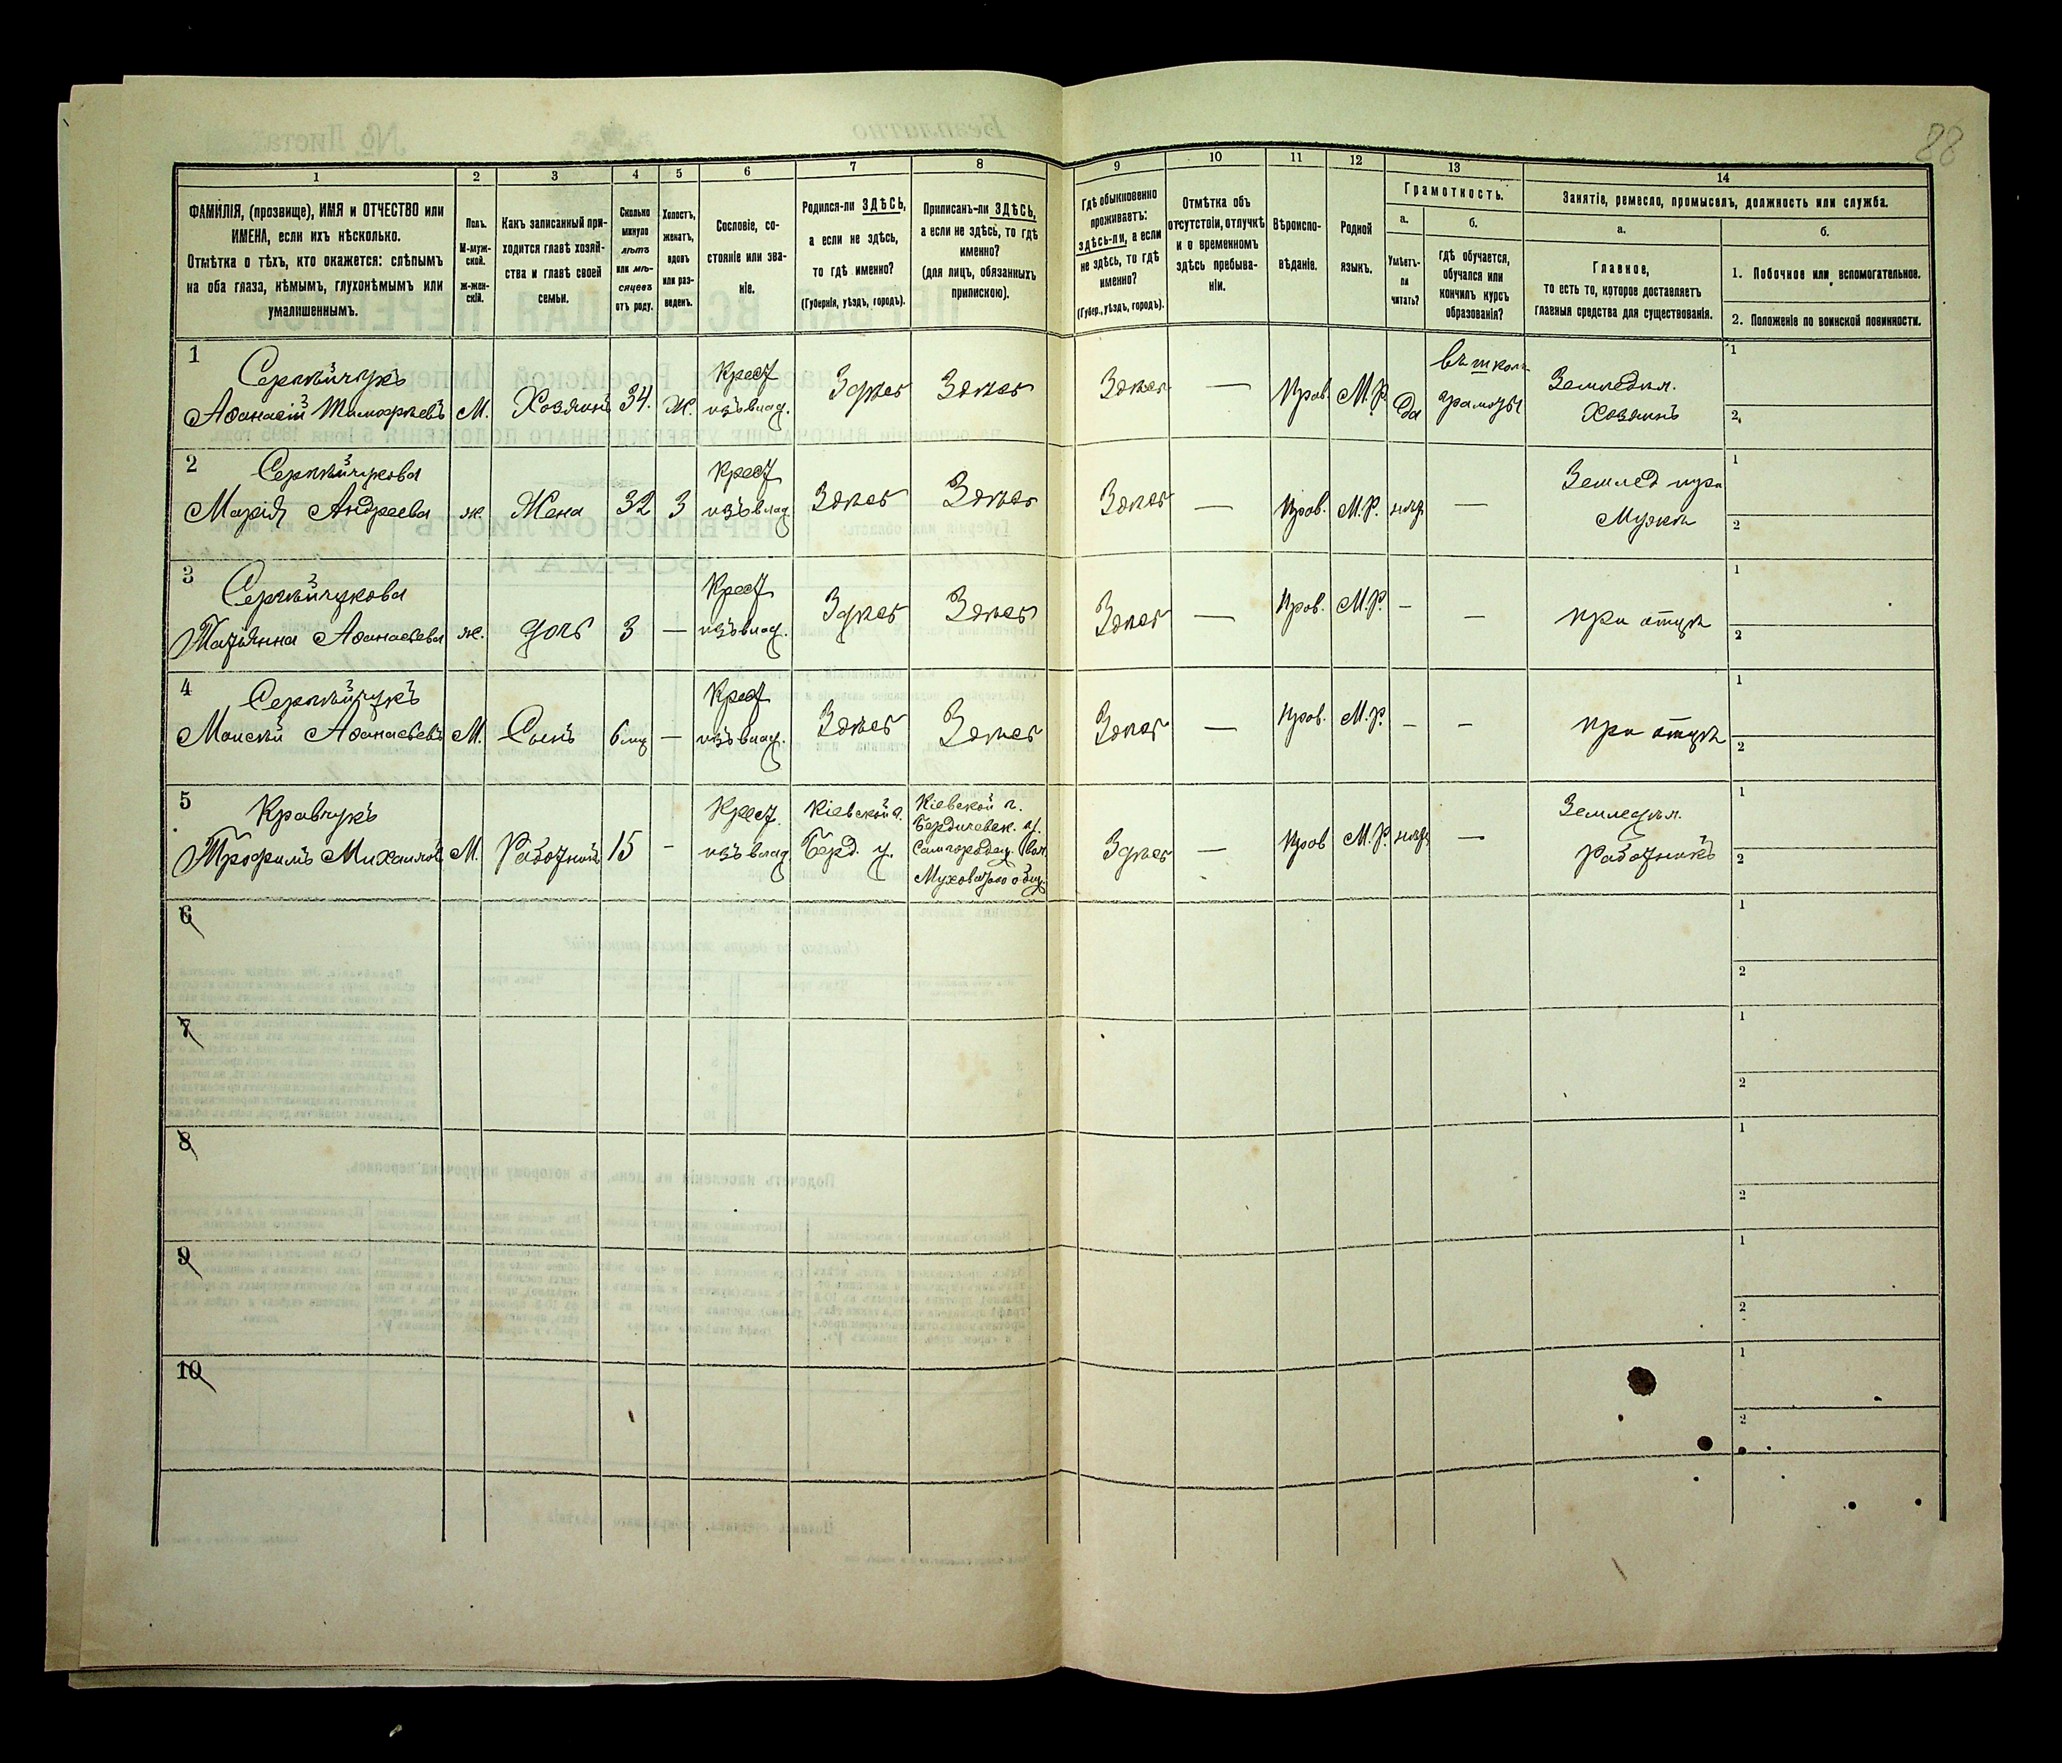 28
1 2 3 4 5 6 7 8 9 10 11 12 13 14
ФАМИЛІЯ, (прозвище), ИМЯ и ОТЧЕСТВО или
ИМЕНА, если ихъ нѣсколько.
Отмѣтка о тѣхъ, кто окажется: слѣпымъ
на оба глаза, нѣмымъ, глухонѣмымъ или
умалишеннымъ.
Полъ.
М-муж-
ской.
Ж-жен-
скій.
Какъ записанный при-
ходится главѣ хозяй-
ства и главѣ своей
семьи.
Сколько
минуло
лѣтъ
или мѣ-
сяцевъ
отъ роду.
Холостъ,
женатъ,
вдовъ
или раз-
веденъ.
Сословіе, со-
стояніе или зва-
ніе.
Родился-ли ЗДѢСЬ,
а если не здѣсь,
то гдѣ именно?
(Губернія, уѣздъ, городъ).
Приписанъ-ли ЗДѢСЬ,
а если не здѣсь, то гдѣ
именно?
(для лицъ, обязанныхъ
припискою).
Гдѣ обыкновенно
проживаетъ:
здѣсь-ли, а если
не здѣсь, то гдѣ
именно?
(Губер., уѣздъ, городъ).
Отмѣтка объ
отсутствіи, отлучкѣ
и о временномъ
здѣсь пребыва-
ніи.
Вѣроиспо-
вѣданіе.
Родной
языкъ.
Грамотность.
а.
Умѣетъ-
ли
читать?
б.
гдѣ обучается,
обучался или
кончилъ курсъ
образованія?
Занятіе, ремесло, промыселъ, должность или служба.
а.
Главное,
то есть то, которое доставляетъ
главныя средства для существованія.
б.
1. Побочное или вспомогательное.
2. Положеніе по воинской повинности.
1 Сергѣйчукъ
Афанасій Тимофѣевъ М. Хозяинъ 34. Ж. Крест изъ влад. Здѣсь Здѣсь Здѣсь — Прав. М.Р. да въ школѣ грамоты Земледѣл. Хозяинъ 1 2
2 Сергѣйчукова
Марія Андреева ж. Жена 32 З Крест изъ влад. Здѣсь Здѣсь Здѣсь — Прав. М.Р. нѣтъ — Землед при Мужѣ 1 2
3 Сергѣйчукова
Татьянна Афанасьева ж. дочь 3 — Крест изъ влад. Здѣсь Здѣсь Здѣсь — Прав. М.Р. — — при отцѣ 1 2
4 Сергѣйчукъ
Моисей Афанасьевъ М. Сынъ 6 мц — Крест изъ влад. Здѣсь Здѣсь Здѣсь — Прав. М.Р. — — при отцѣ 1 2
5 Кравчукъ
Трофимъ Михаиловъ М. Работникъ 15 - Крест. изъ влад Кіевской г. Берд. у. Кіевской г. Бердичевск. у. Самгородец. вол. Здѣсь — Прав М.Р. нѣтъ — Земледѣл. работникъ 1 2
6 1 2
7 1 2
8 1 2
9 1 2
10 1 2